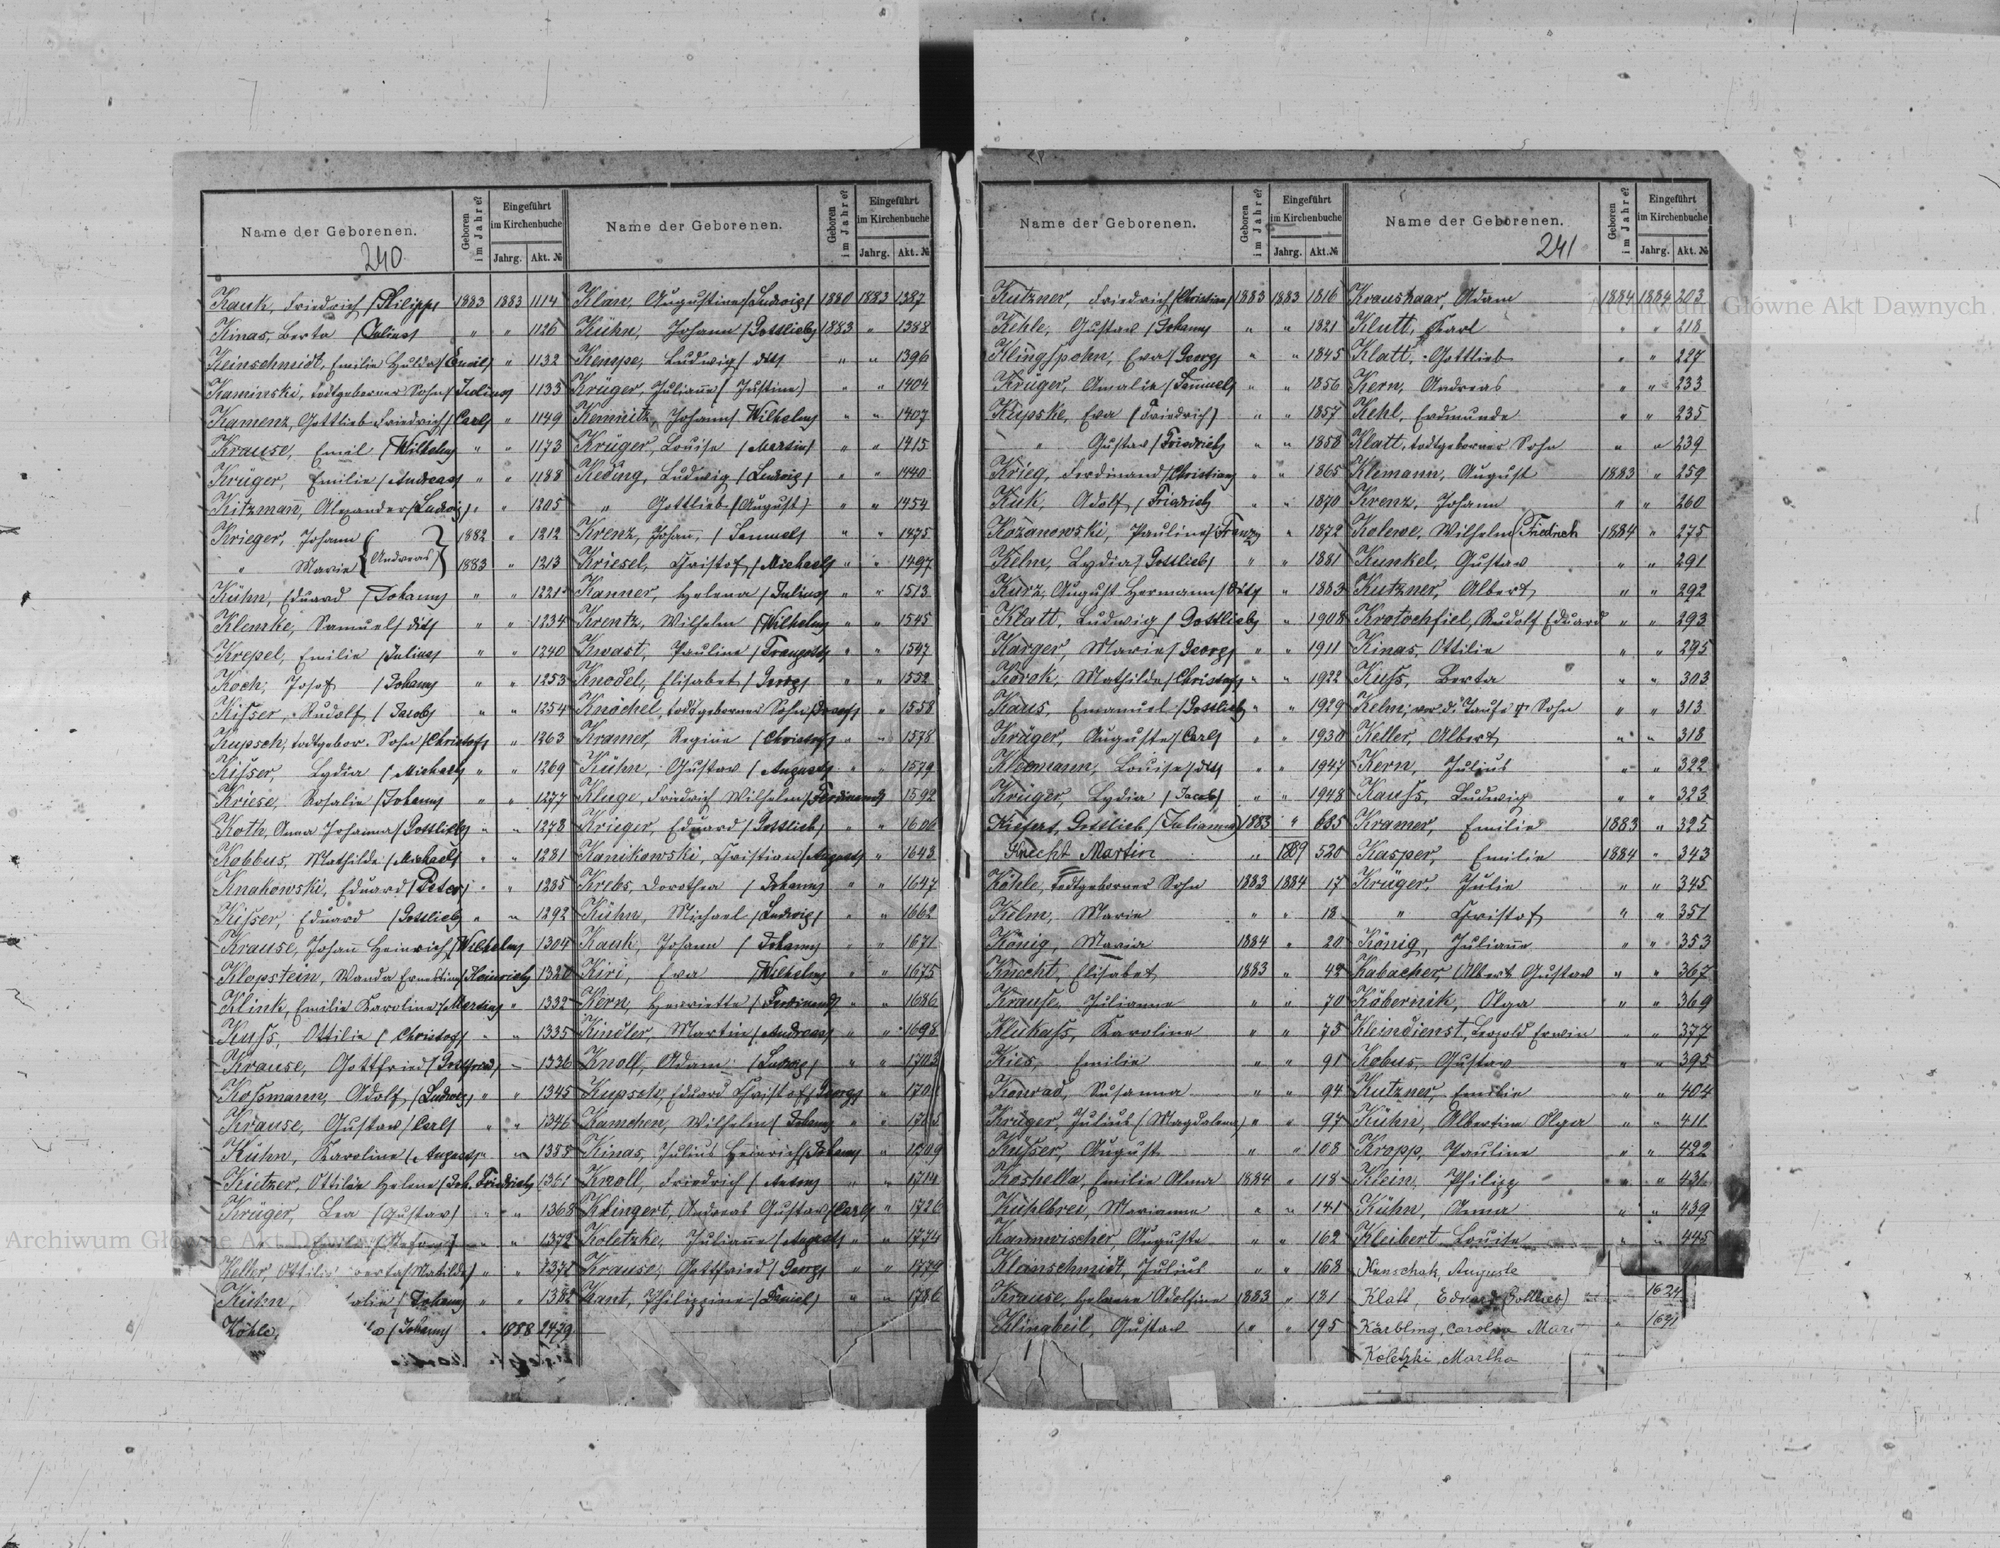 Name der Geborenen. Geboren im Jahre? Eingeführt im Kirchenbuche Jahrg. Akt. №
240
Kauk, Friedrich /Philipp/ 1883 1883 1114
Kinas, Berta /Julius/ " " 1126
Keinschmidt, Emilie Hulda /Emil/ " 1132
Kaminski, todtgeborner Sohn /Julius/ 1133
Kamenz, Gottlieb Friedrich /Carl/ " 1149
Krause, Emil /Wilhelm/ " " 1173
Krüger, Emilie /Andreas/ " " 1188
Kitzmañ, Alexander /Ludwig/ " " 1205
Krieger, Johann 1882 " 1212
" Marie {Andreas} 1883 " 1213
Kühn, Eduard /Johann/ " " 1221
Klemke, Samuel /dit/ " " 1234
Krepel, Emilie /Julius/ " " 1240
Koch, Josef /Johann/ " " 1253
Kisser, Rudolf /Jacob/ " " 1254
Kupsch, todtgebor. Sohn /Christof/ " 1263
Kisser, Lydia /Michael/ " " 1269
Kriese, Rosalie /Johann/ " " 1277
Koth, Anna Johanna /Gottlieb/ " " 1278
Kobbus, Mathilde /Michael/ " " 1281
Knakowski, Eduard /Peter/ " " 1285
Kisser, Eduard /Gottlieb/ " " 1292
Krause, Johañ Heinrich /Wilhelm/ 1304
Klopstein, Wanda Ernestine /Heinrich/ 1320
Klink, Emilie Karoline /Martin/ " 1332
Kuss, Ottilie /Christof/ " " 1335
Krause, Gottfried /Gottfried/ " 1336
Kossmann, Adolf /Ludwig/ " " 1345
Krause, Gustav /Carl/ " " 1346
Kühn, Karoline /August/ " " 1358
Kietzer, Ottilie Helene /Joh. Friedrich/ 1361
Krüger, Lea /Gustav/ " " 1368
1372
Keller, Ottilie /Matilda/ " "
Kühn, /Johann/ " "
Köhle, /Johann/ " 1888 2479
Name der Geborenen. Geboren im Jahre? Eingeführt im Kirchenbuche Jahrg. Akt. №
Klan, Augustine /Ludwig/ 1880 1883 1387
Kühn, Johann /Gottlieb/ 1883 " 1388
Kempe, Ludwig /dit/ " " 1396
Krüger, Juliañe /Justine/ " " 1404
Kemnitz, Johann /Wilhelm/ " " 1407
Krüger, Louise /Martin/ " " 1415
Keding, Ludwig /Ludwig/ " " 1440
" Gottlieb /August/ " " 1454
Krenz, Johañ, /Samuel/ " " 1475
Kriesel, Christof /Michael/ " " 1497
Kanner, Helena /Julius/ " " 1513
Krentz, Wilhelm /Wilhelm/ " " 1545
Kwast, Pauline " " 1547
Knodel, Elisabet /Georg/ " " 1552
Knöchel, todtgeborner Sohn " 1558
Kramer, Regine /Christof/ " " 1578
Kühn, Gustav /August/ " " 1579
Kluge, Friedrich Wilhelm /Ferdinand/ 1592
Krieger, Eduard /Gottlieb/ " " 1606
Kanikowski, Christian /August/ " 1643
Krebs, Dorothea /Johann/ " " 1647
Kühn, Michael /Ludwig/ " " 1662
Kauk, Johann /Johann/ " " 1671
Kiri, Eva /Wilhelm/ " " 1675
Kern, Henriette /Ferdinand/ " 1686
Kindler, Martin /Andreas/ " " 1698
Knoll, Adam /Ludwig/ " " 1703
Kupsch, Eduard Christof /Georg/ "
Kamchen, Wilhelm /Johann/ "
Kinas, Julius Heinrich /Johann/ "
Knoll, Friedrich /Anton/ " " 1714
Klingert, Andreas Gustav /Carl/ " 1726
Koletzki, Juliañe /August/ " " 1774
Krause, Gottfried /Georg/ " " 1779
Kant, Philippine /Daniel/ " " 1786
Name der Geborenen. Geboren im Jahre? Eingeführt im Kirchenbuche Jahrg. Akt. №
Kutzner, Friedrich /Christian/ 1883 1883 1816
Kehle, Gustav /Johann/ " " 1821
Klingspohn, Eva /Georg/ " " 1845
Krüger, Amalie /Samuel/ " " 1856
Kupske, Eva /Friedrich/ " " 1857
" Gustav /Friedrich/ " " 1858
Krieg, Ferdinand /Christian/ " " 1865
Kuk, Adolf /Friedrich/ " " 1870
Kozanowski, Pauline /Franz/ " 1872
Kelm, Lydia /Gottlieb/ " " 1881
Kurz, August Hermann /Otto/ " 1883
Klatt, Ludwig /Gottlieb/ " 1908
Karger, Marie /Georg/ " " 1911
Korok, Mathilde /Christof/ " " 1922
Kaus, Emanuel /Gottlieb/ " " 1929
Krüger, Auguste /Carl/ " " 1930
Klemann, Louise /dit/ " " 1947
Krüger, Lydia /Jacob/ " " 1948
Kiefert, Gottlieb /Julianna/ 1883 " 685
Knecht Martin " 1889 520
Köhle, todtgeborner Sohn 1883 1884 17
Kelm, Marie " " 18
König, Maria 1884 " 20
Knecht, Elisabet 1883 " 42
Krause, Julianne " " 70
Kleihass, Karoline " " 75
Kies, Emilie " " 91
Konrad, Susanna " " 94
Krüger, Julius /Magdalena/ " " 97
Küsser, August " " 108
Koshella, Emilie Alma 1884 " 118
Kühlbrei, Marianne " " 141
Kannwischer, Auguste " " 162
Kleinschmidt, Julius " " 168
Krause, Helene Adolfine 1883 " 181
Klingbeil, Gustav " " 195
Name der Geborenen. Geboren im Jahre? Eingeführt im Kirchenbuche Jahrg. Akt. №
241
Kraushaar Adam 1884 1884 203
Klutt, Karl " " 218
Klatt, Gottlieb " " 227
Kern, Andreas " " 233
Kehl, Erdmunde " " 235
Klatt, todtgeborner Sohn " " 239
Klemann, August 1883 " 259
Krenz, Johann " " 260
Kolewe, Wilhelm /Friedrich 1884 " 275
Kunkel, Gustav " " 291
Kutzner, Albert " " 292
Kratochfiel, Rudolf Eduard " " 293
Kinas, Ottilie " " 295
Kuss, Berta " " 303
Kelm, vor d. Taufe † Sohn " " 313
Keller, Albert " " 318
Kern, Julius " " 322
Kauss, Ludwig " " 323
Kramer, Emilie 1883 " 325
Kasper, Emilie 1884 " 343
Krüger, Julie " " 345
" Christof " " 351
König, Juliañe " " 353
Kabacher, Albert Gustav " " 367
Köbernik, Olga " " 369
Kleindienst, Leopold Erwin " " 377
Kobus, Gustav " " 395
Kutzner, Emilie " " 404
Kühn, Albertine Olga " " 411
Kropp, Pauline " " 422
Klein, Philipp " " 431
Kühn, Anna " " 439
Kleibert Louise " " 445
Kenschak, Auguste
Klatt, Edward (Gottlieb) 1624
Kärbling, Carolina Mari " 1631
Koletzki, Martha
Archiwum Główne Akt Dawnych
Archiwum Główne Akt Dawnych